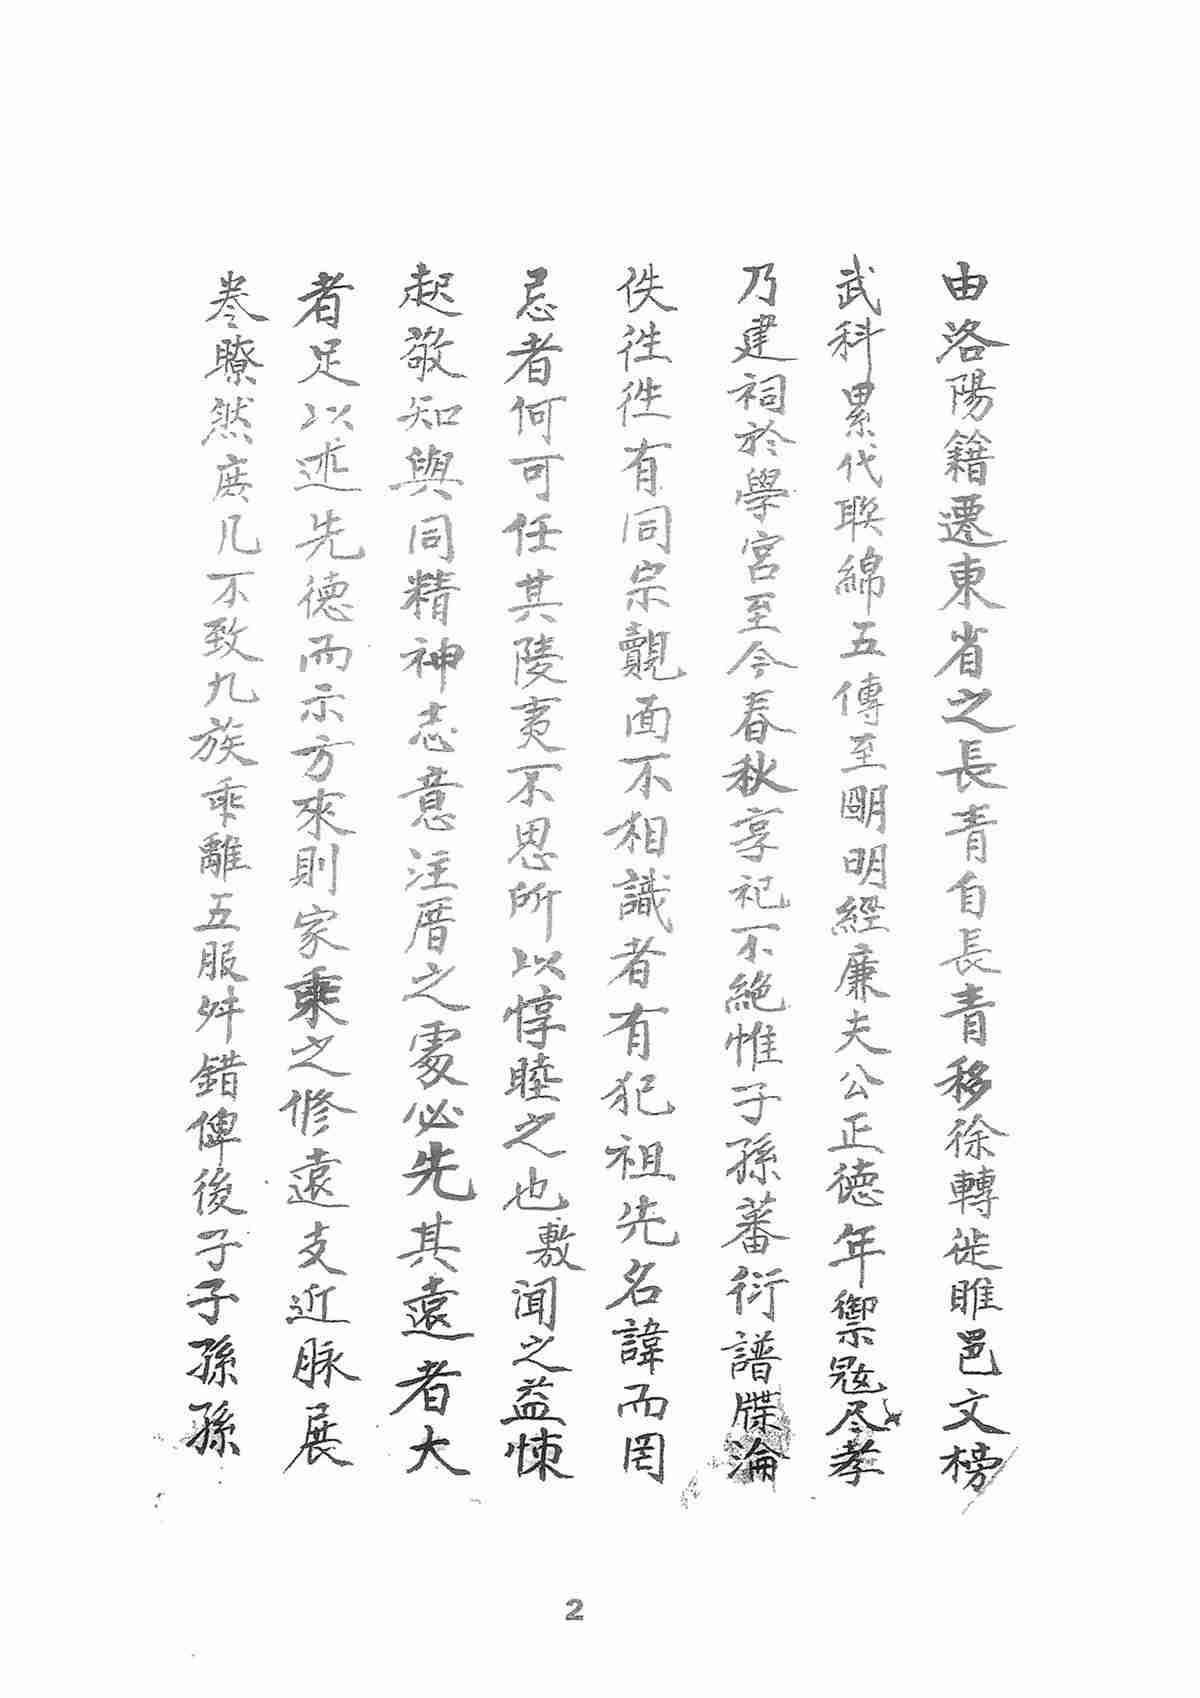 由洛陽籍遷東省之長青自長青移徐轉徙睢邑文榜
武科累代聯綿五傳至明經廉夫公正德年禦寇尽孝
乃建祠於學宮至今春秋享祀不絶惟子孫蕃衍譜牒淪
佚徃徃有同宗覿面不相識者有犯祖先名諱而罔
忌者何可任其陵夷不思所以惇睦之也敷闻之益悚
起敬知與同精神志意注厝之處必先其遠者大
者足以述先德而示方來則家乘之修遠支近脉展
卷瞭然庻几不致九族乖離五服舛錯俾後子子孫孫
2